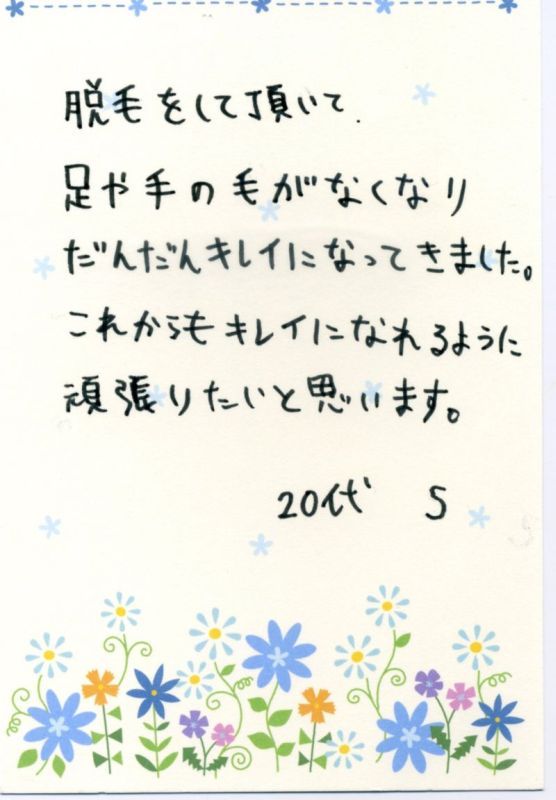 脱毛をして頂いて.
足や手の毛がなくなり
だんだんキレイになってきました。
これからもキレイになれるように
頑張りたいと思います。
20代 S